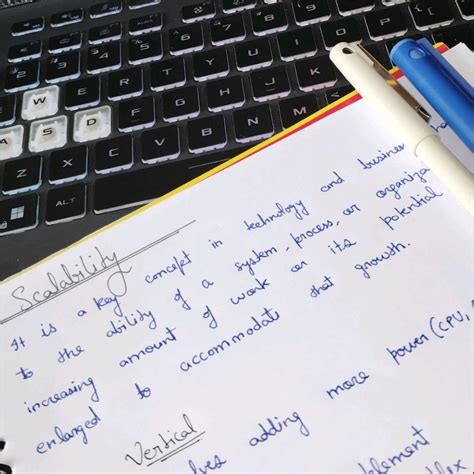 Scalability
It is a key concept in technology and business
to the ability of a system, process, or organiza
increasing amount of work or its potential
enlarged to accommodate that growth.
Vertical
lves adding more power (CPU,
W
A S D
ALT